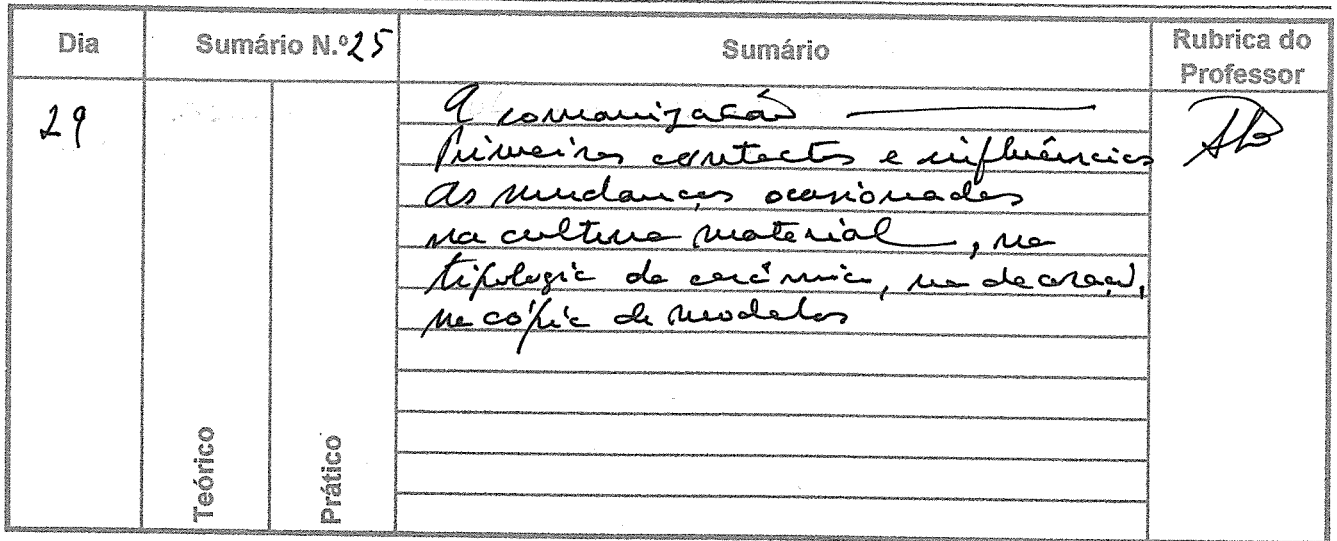 Dia Sumário N.º 25 Sumário Rubrica do Professor
29
A romanização
Primeiros contactos e influências
as mudanças ocasionadas
na cultura material, na
tipologia da cerâmica, na decoração,
na cópia de modelos
Teórico
Prático